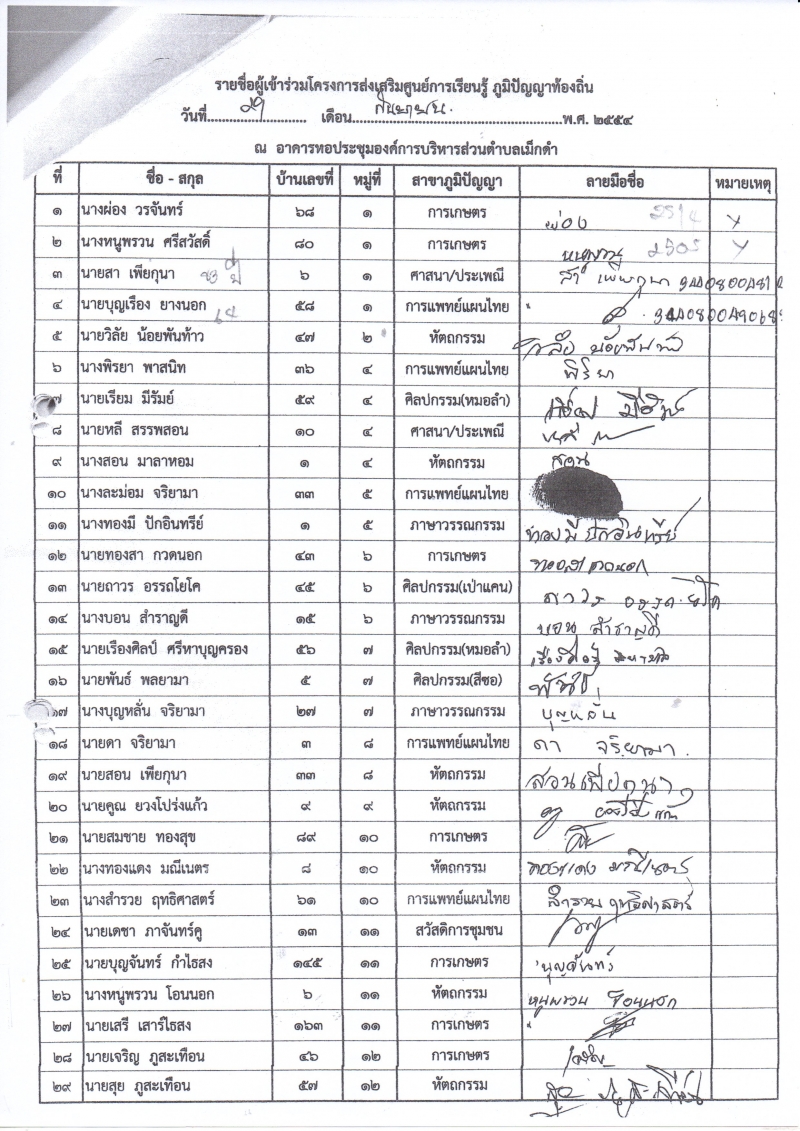 รายชื่อผู้เข้าร่วมโครงการส่งเสริมศูนย์การเรียนรู้ ภูมิปัญญาท้องถิ่น
วันที่.....๒๗..... เดือน.....กันยายน.....พ.ศ. ๒๕๕๔
ณ อาคารหอประชุมองค์การบริหารส่วนตำบลเม็กดำ
ที่ ชื่อ - สกุล บ้านเลขที่ หมู่ที่ สาขาภูมิปัญญา ลายมือชื่อ หมายเหตุ
๑ นางผ่อง วรจันทร์ ๖๘ ๑ การเกษตร ผ่อง
๒ นางหนูพรวน ศรีสวัสดิ์ ๘๐ ๑ การเกษตร หนูพรวน
๓ นายสา เพียกุนา ๖ ๑ ศาสนา/ประเพณี สา เพียกุนา
๔ นายบุญเรือง ยางนอก ๕๘ ๑ การแพทย์แผนไทย
๕ นายวิลัย น้อยพันท้าว ๔๗ ๒ หัตถกรรม
๖ นางพิรยา พาสนิท ๓๖ ๔ การแพทย์แผนไทย พิรยา
๗ นายเรียม มีรัมย์ ๕๙ ๔ ศิลปกรรม(หมอลำ)
๘ นายหลี สรรพสอน ๑๐ ๔ ศาสนา/ประเพณี
๙ นางสอน มาลาหอม ๑ ๔ หัตถกรรม สอน
๑๐ นางละม่อม จริยามา ๓๓ ๕ การแพทย์แผนไทย
๑๑ นางทองมี ปักอินทรีย์ ๑ ๕ ภาษาวรรณกรรม ทองมี ปักอินทรีย์
๑๒ นายทองสา กวดนอก ๔๓ ๖ การเกษตร ทองสา กวดนอก
๑๓ นายถาวร อรรถโยโค ๔๕ ๖ ศิลปกรรม(เป่าแคน) ถาวร
๑๔ นางบอน สำราญดี ๑๕ ๖ ภาษาวรรณกรรม บอน สำราญดี
๑๕ นายเรืองศิลป์ ศรีหาบุญครอง ๕๖ ๗ ศิลปกรรม(หมอลำ) เรืองศิลป์
๑๖ นายพันธ์ พลยามา ๕ ๗ ศิลปกรรม(สีซอ) พันธ์
๑๗ นางบุญหลั่น จริยามา ๒๗ ๗ ภาษาวรรณกรรม บุญหลั่น
๑๘ นายดา จริยามา ๓ ๘ การแพทย์แผนไทย ดา จริยามา
๑๙ นายสอน เพียกุนา ๓๓ ๘ หัตถกรรม สอน เพียกุนา
๒๐ นายคูณ ยวงโปร่งแก้ว ๙ ๙ หัตถกรรม
๒๑ นายสมชาย ทองสุข ๘๙ ๑๐ การเกษตร
๒๒ นางทองแดง มณีเนตร ๘ ๑๐ หัตถกรรม ทองแดง มณีเนตร
๒๓ นางสำรวย ฤทธิศาสตร์ ๖๑ ๑๐ การแพทย์แผนไทย สำรวย ฤทธิศาสตร์
๒๔ นายเดชา ภาจันทร์คู ๑๓ ๑๑ สวัสดิการชุมชน
๒๕ นายบุญจันทร์ กำไธสง ๑๔๕ ๑๑ การเกษตร บุญจันทร์
๒๖ นางหนูพรวน โอนนอก ๖ ๑๑ หัตถกรรม หนูพรวน โอนนอก
๒๗ นายเสรี เสาร์ไธสง ๑๖๓ ๑๑ การเกษตร
๒๘ นายเจริญ ภูสะเทือน ๔๖ ๑๒ การเกษตร เจริญ
๒๙ นายสุย ภูสะเทือน ๕๗ ๑๒ หัตถกรรม